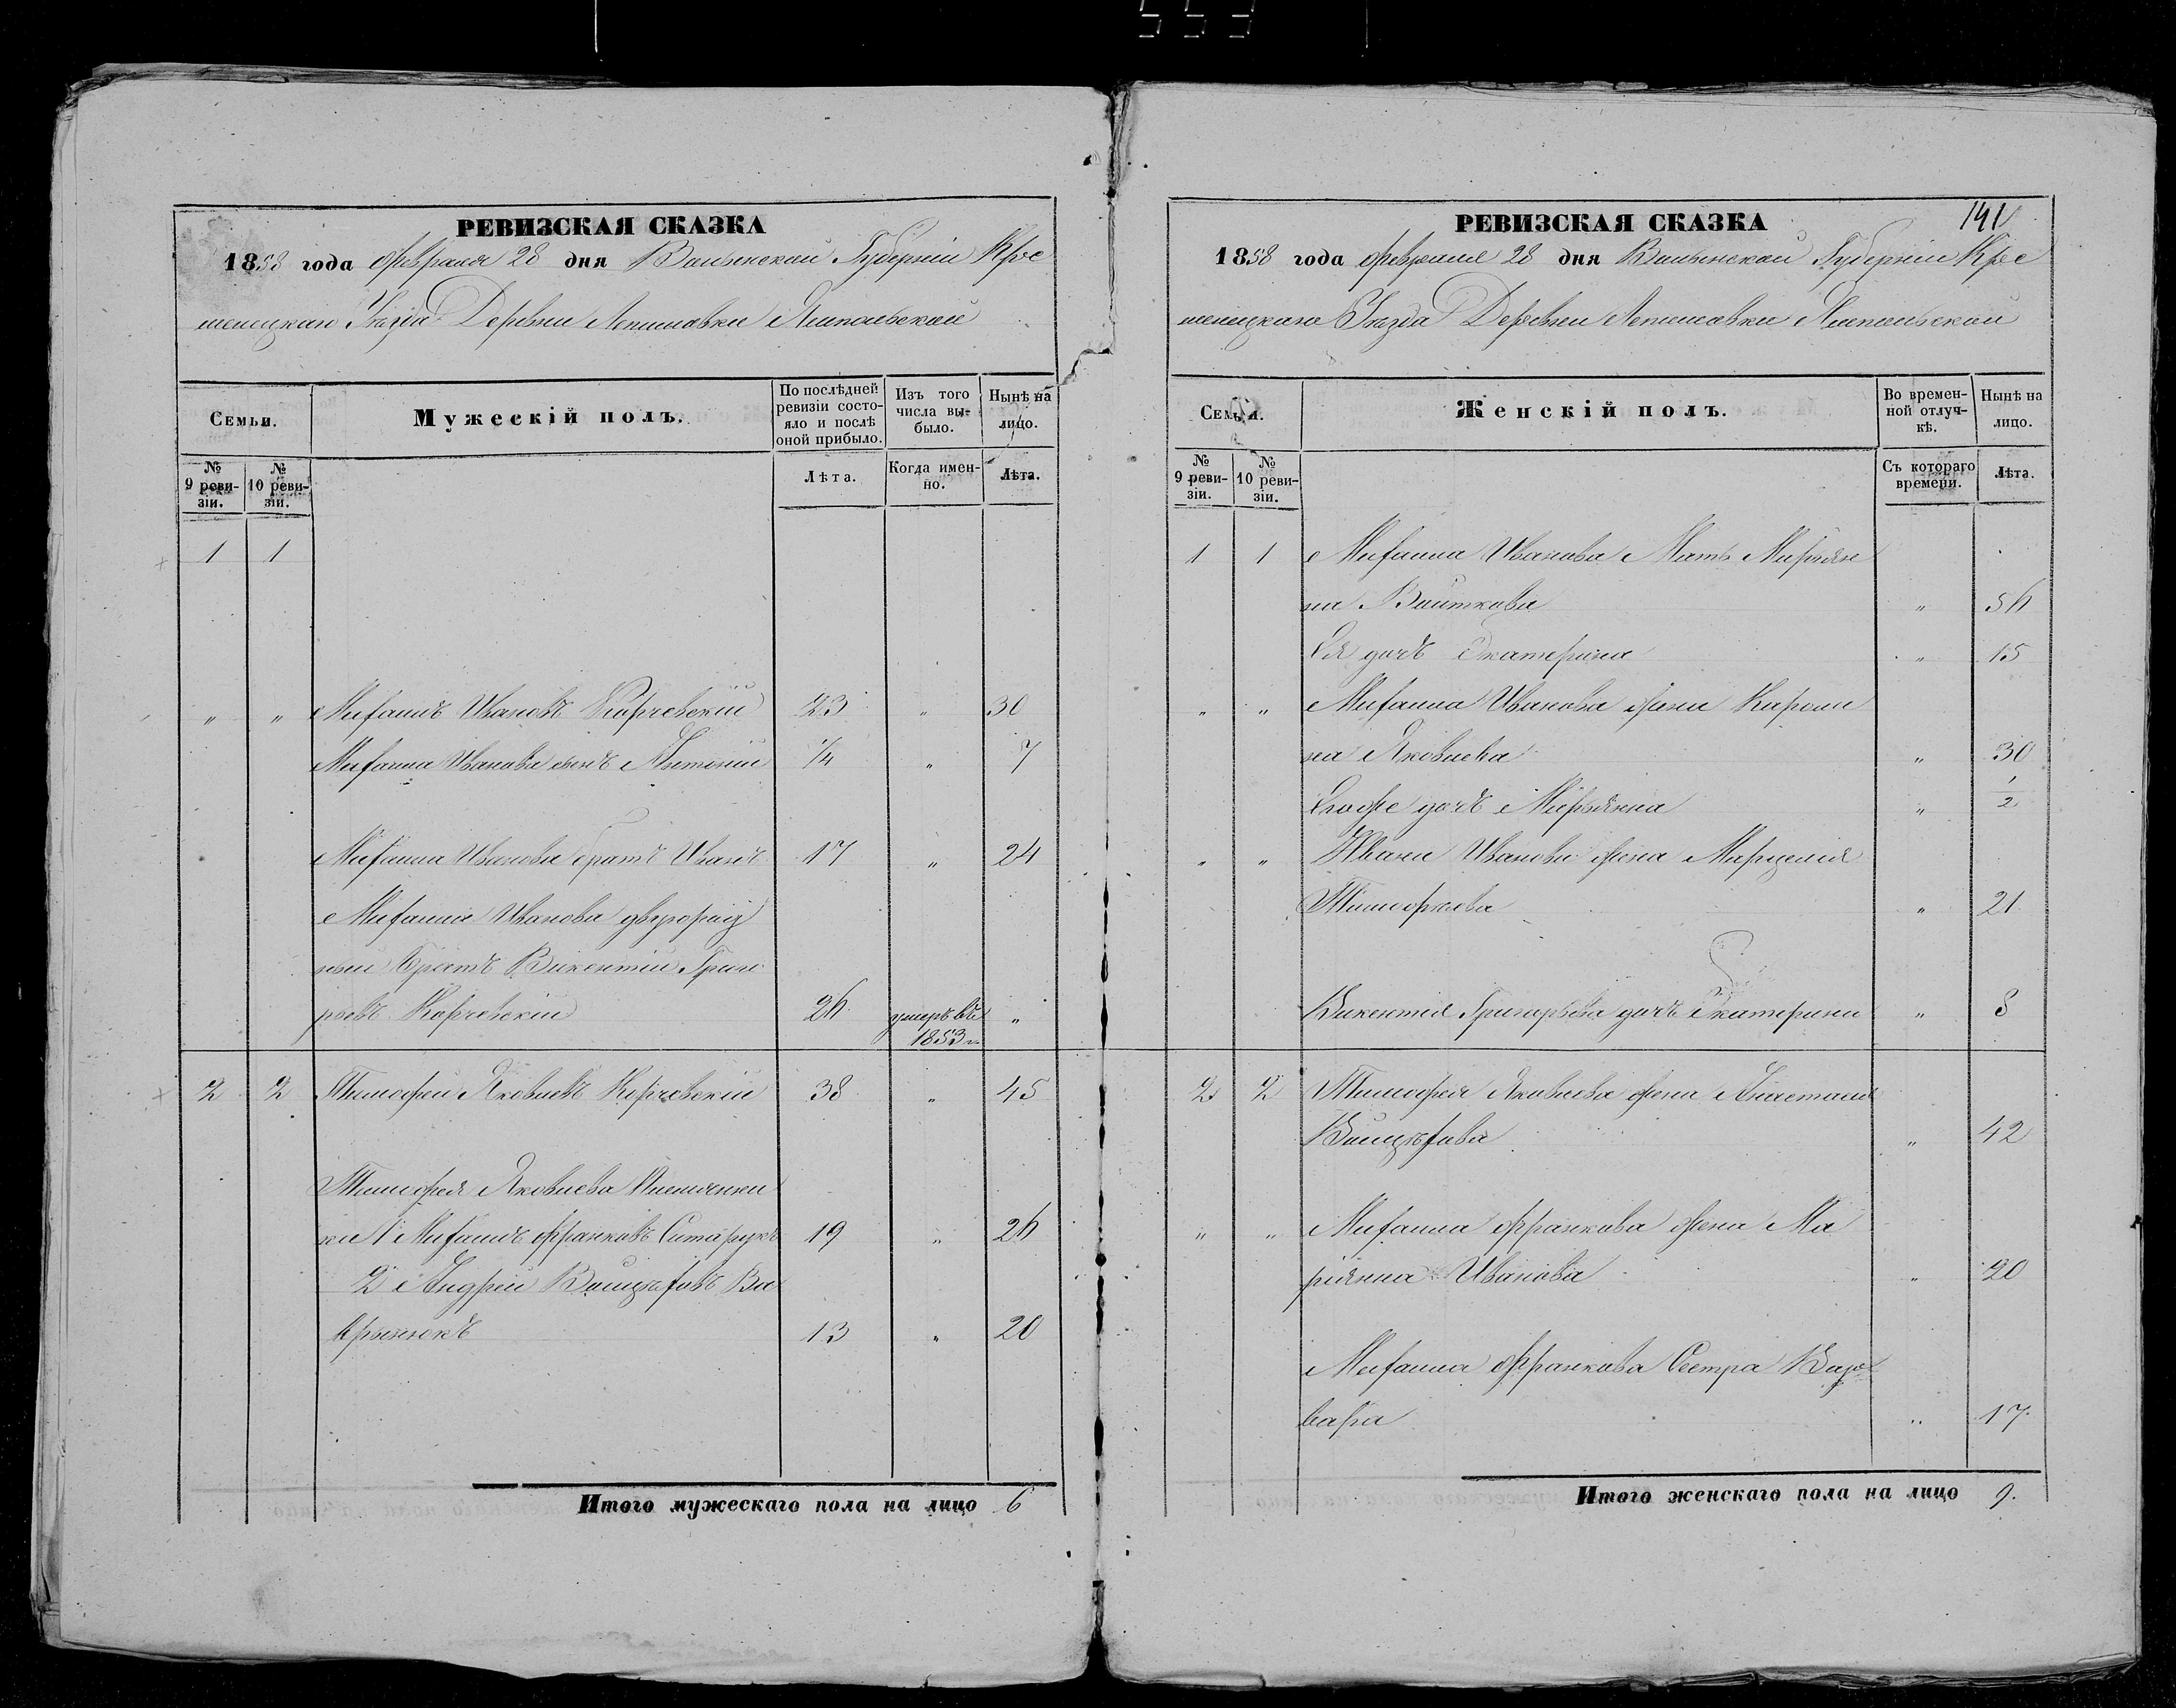 553
РЕВИЗСКАЯ СКАЗКА
1858 года Февраля 28 дня Волынской Губерніи Кре
менецкаго Уѣзда Деревни Лепесовки Ямпольской
Семьи.
Мужескій полъ.
По послѣдней ревизіи состояло и послѣ оной прибыло.
Изъ того числа выбыло.
Нынѣ на лицо.
№ 9 реви-зіи.
№ 10 реви-зіи.
Лѣта.
Когда имен-но.
Лѣта.
1 1
" " Михаилъ Ивановъ Корчевскій 23 " 30
Михаила Иванова сынъ Антоній 1/4 " 7
Михаила Иванова братъ Иванъ 17 " 24
Михаила Иванова двуород
ный Братъ Викентій Григо
рьевъ Корчевскій 26 умеръ въ 1853 г. "
2 2 Тимофей Яковлевъ Корчевскій 38 " 45
Тимофея Яковлева Племянни
ки 1 Михаилъ Франковъ Ситарукъ 19 " 26
2 Андрей Войцѣховъ Ва
13 " 20
Итого мужескаго пола на лицо 6
РЕВИЗСКАЯ СКАЗКА
191
1858 года Февраля 28 дня Волынской Губерніи Кре
менецкаго Уѣзда Деревни Лепесовки Ямпольской
Семьи.
Женскій полъ.
Во времен-ной отлуч-кѣ.
Нынѣ на лицо.
№ 9 реви-зіи.
№ 10 реви-зіи.
Съ котораго времени.
Лѣта.
1 1 Михаила Иванова Мать Маріян
на Войткова " 56
Ея дочь Екатерина " 15
" " Михаила Иванова жена Кароли
на Яковлева " 30
Егоже дочь Марьянна " 1/2
" " Ивана Иванова жена Марцелія
Тимофеева " 21
Викентія Григорьева дочь Екатерина " 8
2 2 Тимофея Яковлева жена Анастасія
Войцѣхова " 42
" " Михаила Франкова жена Ма
ріянна Иванова " 20
Михаила Франкова Сестра Вар
вара " 17
Итого женскаго пола на лицо 9.